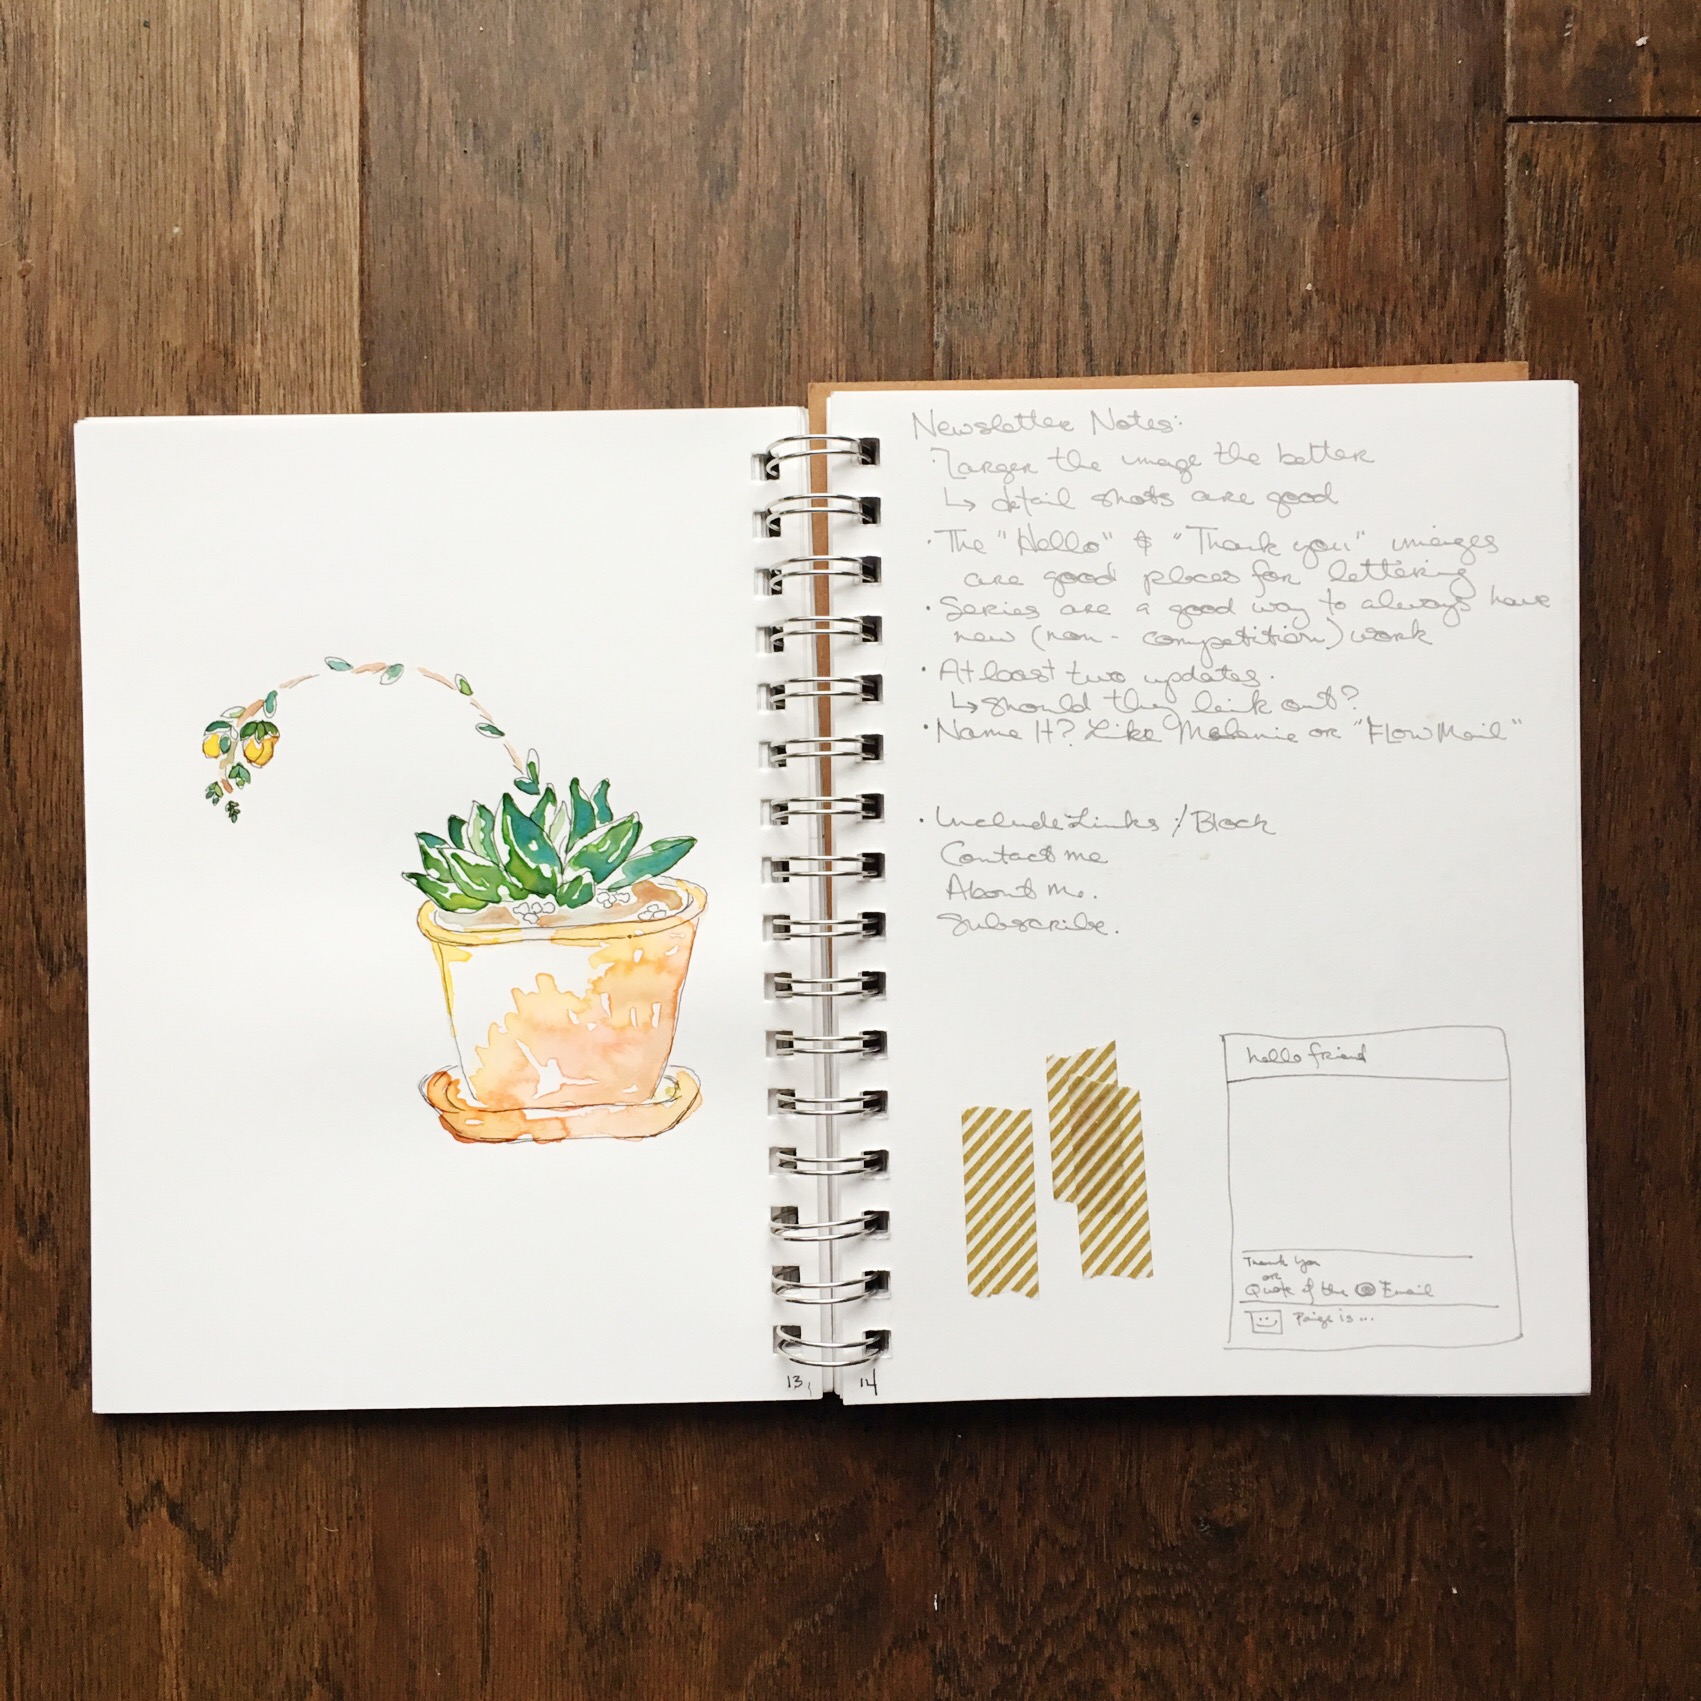 Newsletter Notes:
· Larger the image the better
↳ detail shots are good
· The "Hello" & "Thank you" images
are good places for lettering
· Series are a good way to always have
new (non-competition) work
· At least two updates.
↳ should they link out?
· Name It? Like Melanie or "Flow Mail"
· Include Links / Block
Contact me
About me.
Subscribe.
hello friend
Thank you
or
Quote of the Email
Paige is ...
13
14